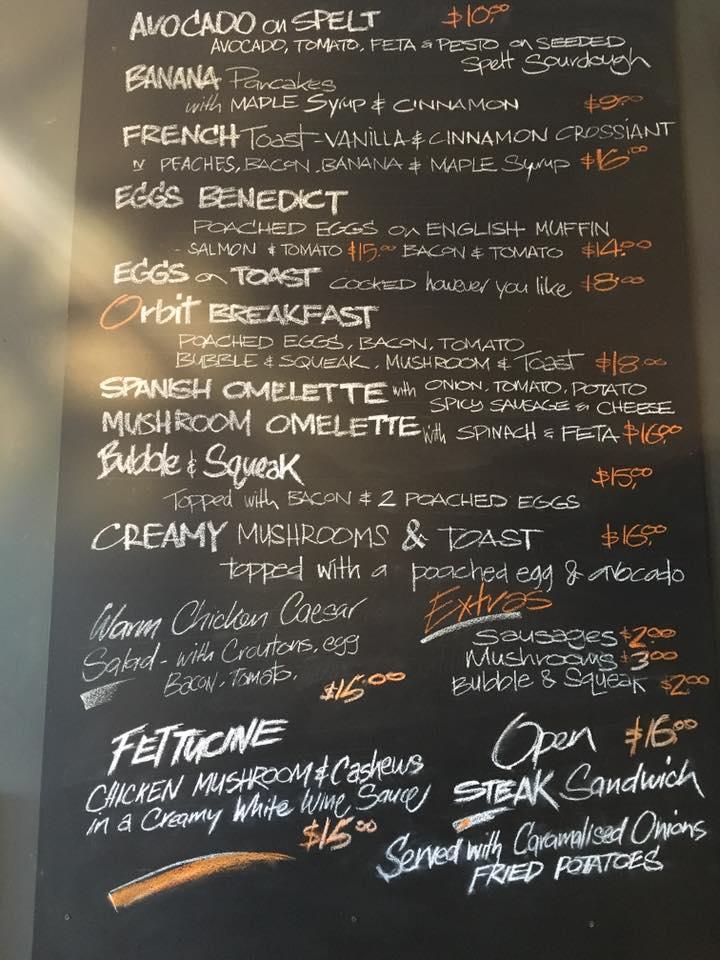 AVOCADO on SPELT $10.00
AVOCADO, TOMATO, FETA & PESTO on SEEDED
Spelt Sourdough
BANANA Pancakes
with MAPLE Syrup & CINNAMON $9.00
FRENCH Toast - VANILLA & CINNAMON CROSSIANT
N PEACHES, BACON, BANANA & MAPLE Syrup $16.00
EGGS BENEDICT
POACHED EGGS on ENGLISH MUFFIN
- SALMON & TOMATO $15.00 BACON & TOMATO $14.00
EGGS on TOAST COCKED however you like $8.00
Orbit BREAKFAST
POACHED EGGS, BACON, TOMATO
BUBBLE & SQUEAK, MUSHROOM & Toast $18.00
SPANISH OMELETTE with ONION, TOMATO, POTATO
SPICY SAUSAGE & CHEESE
MUSHROOM OMELETTE with SPINACH & FETA $16.00
Bubble & SqueaK $15.00
Topped with BACON & 2 POACHED EGGS
CREAMY MUSHROOMS & TOAST $16.00
topped with a poached egg & avocado
Warm Chicken Caesar
Salad - with Croutons, egg
Bacon, Tomato. $15.00
Extras
Sausages $2.00
Mushrooms $3.00
Bubble & Squeak $2.00
FETTUCINE
CHICKEN MUSHROOM & Cashews
in a Creamy White Wine Sauce
$15.00
Open $16.00
STEAK Sandwich
Served with Caramalised Onions
FRIED POTATOES